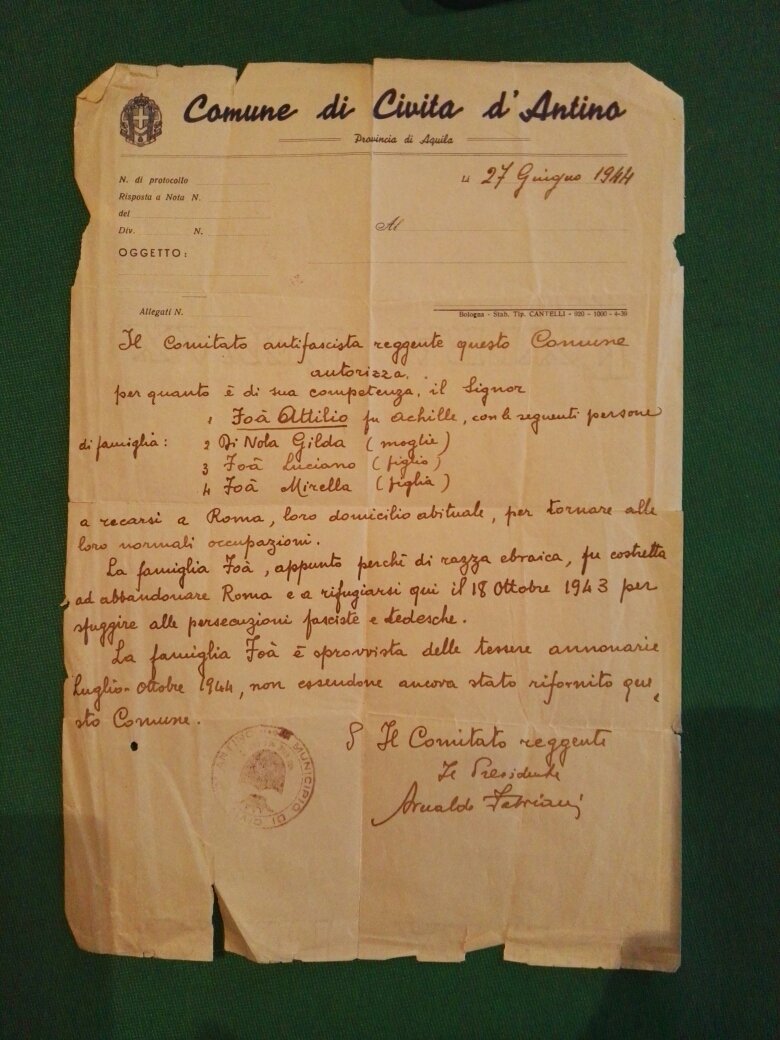 Comune di Civita d'Antino
Provincia di Aquila
N. di protocollo
Li 27 Giugno 1944
Risposta a Nota N.
del
Div. N.
Al
OGGETTO:
Allegati N.
Bologna - Stab. Tip. CANTELLI - 920 - 1000 - 4-39
Il Comitato antifascista reggente questo Comune
autorizza..
per quanto è di sua competenza, il Signor
1 Foà Attilio fu Achille, con le seguenti persone
di famiglia: 2 Di Nola Gilda (moglie)
3 Foà Luciano (figlio)
4 Foà Mirella (figlia)
a recarsi a Roma, loro domicilio abituale, per tornare alle
loro normali occupazioni.
La famiglia Foà, appunto perchè di razza ebraica, fu costretta
ad abbandonare Roma e a rifugiarsi qui il 18 Ottobre 1943 per
sfuggire alle persecuzioni fasciste e tedesche.
La famiglia Foà è sprovvista delle tessere annonarie
Luglio-Ottobre 1944, non essendone ancora stato rifornito que
sto Comune.
Il Comitato reggente
Il Presidente
Arnaldo
MUNICIPIO DI